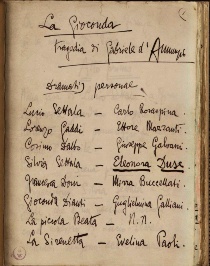 La Gioconda
Tragedia di Gabriele d'Annunzio
Dramatis personae
Lucio Settala — Carlo Rosaspina.
Lorenzo Gaddi — Ettore Mazzanti.
Cosimo Dalbo — Giuseppe Galvani.
Silvia Settala — Eleonora Duse
Francesca Doni — Mirra Buccellati.
Gioconda Dianti — Guglielmina Galliani.
La piccola Beata — N.N.
La Sirenetta — Evelina Paoli.